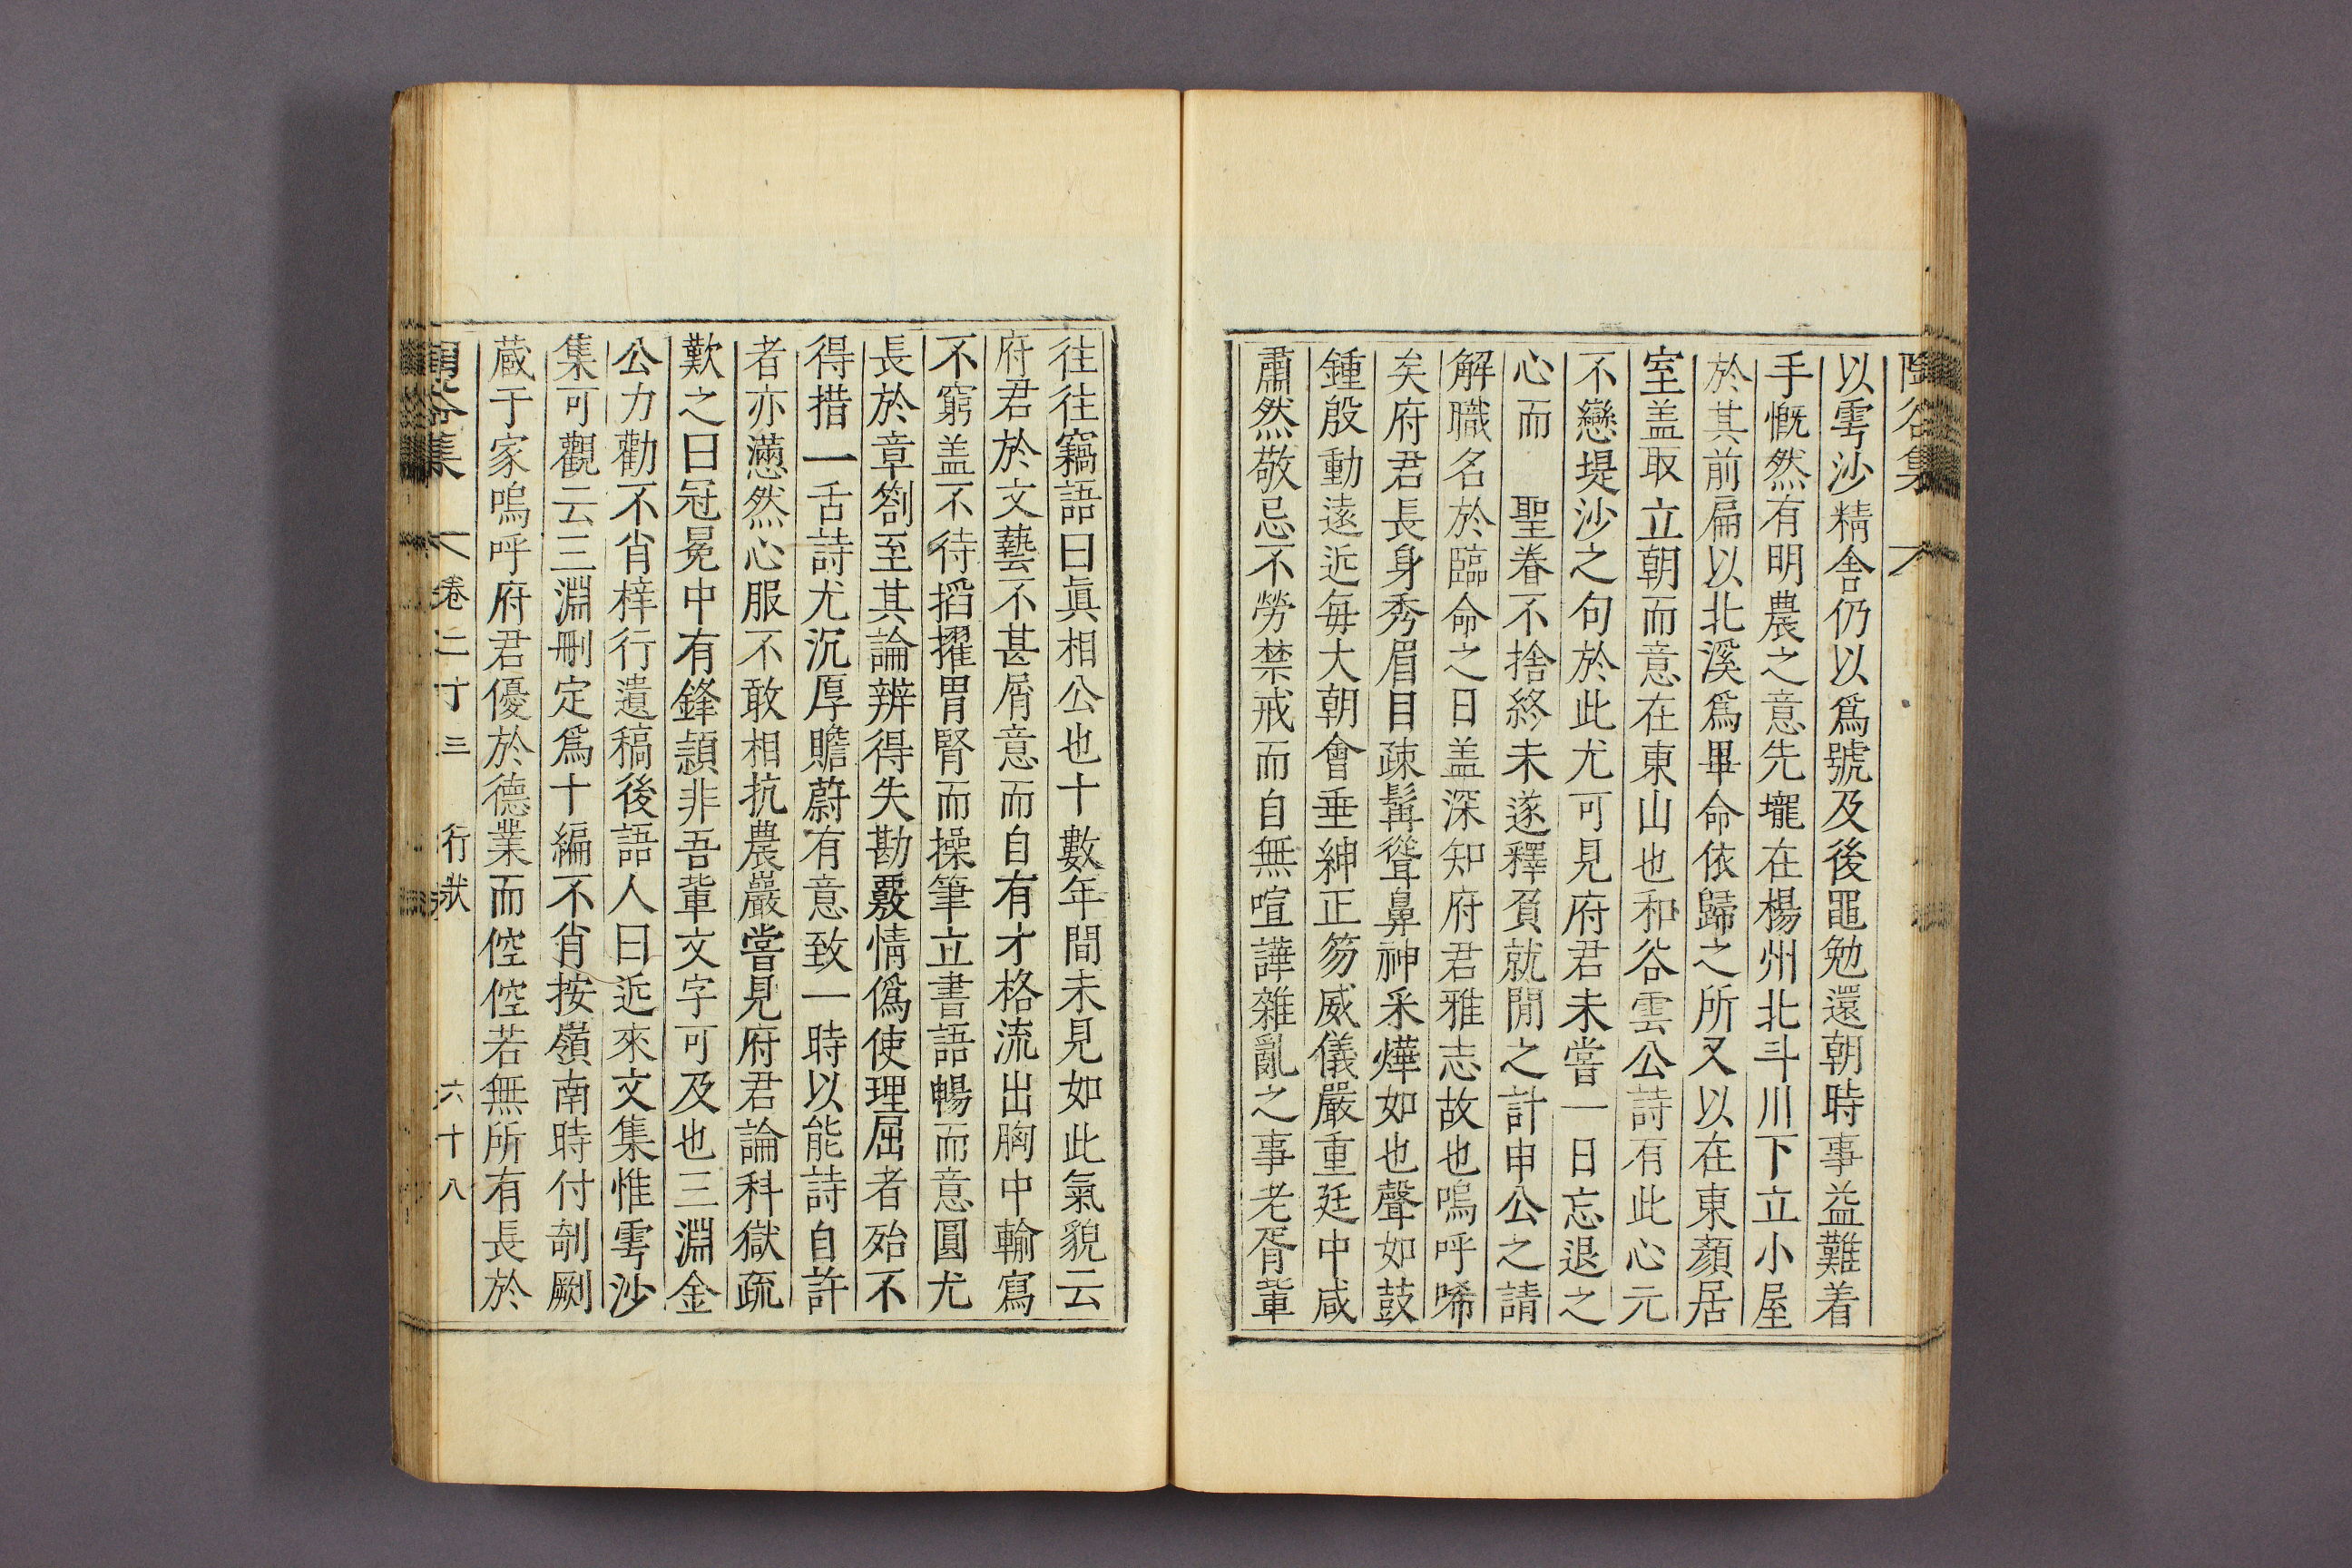 陶谷集
以雩沙精舍仍以爲號及後黽勉還朝時事益難着
手慨然有明農之意先壠在楊州北斗川下立小屋
於其前扁以北溪爲畢命依歸之所又以在東顏居
室盖取立朝而意在東山也和谷雲公詩有此心元
不戀堤沙之句於此尤可見府君未嘗一日忘退之
心而　聖眷不捨終未遂釋負就閒之計申公之請
解職名於臨命之日盖深知府君雅志故也嗚呼唏
矣府君長身秀眉目疎髯聳鼻神采燁如也聲如鼓
鍾殷動遠近每大朝會垂紳正笏威儀嚴重廷中咸
肅然敬忌不勞禁戒而自無喧譁雜亂之事老胥輩
往往竊語曰眞相公也十數年間未見如此氣貌云
府君於文藝不甚屑意而自有才格流出胸中輸寫
不窮盖不待搯擢胃腎而操筆立書語暢而意圓尤
長於章劄至其論辨得失勘覈情僞使理屈者殆不
得措一舌詩尤沉厚贍蔚有意致一時以能詩自許
者亦懣然心服不敢相抗農巖嘗見府君論科獄疏
歎之曰冠冕中有鋒頴非吾輩文字可及也三淵金
公力勸不肖梓行遺稿後語人曰近來文集惟雩沙
集可觀云三淵刪定爲十編不肖按嶺南時付剞劂
蔵于家嗚呼府君優於德業而倥倥若無所有長於
陶谷集　卷二十三　行狀　六十八